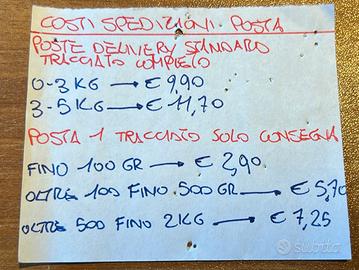 COSTI SPEDIZIONI POSTA
POSTE DELIVERY STANDARD
TRACCIATO COMPLETO
0-3 KG → € 9,90
3-5 KG → € 11,70
POSTA 1 TRACCIATO SOLO CONSEGNA
FINO 100 GR → € 2,90
OLTRE 100 FINO 500 GR → € 5,70
OLTRE 500 FINO 2 KG → € 7,25
subito